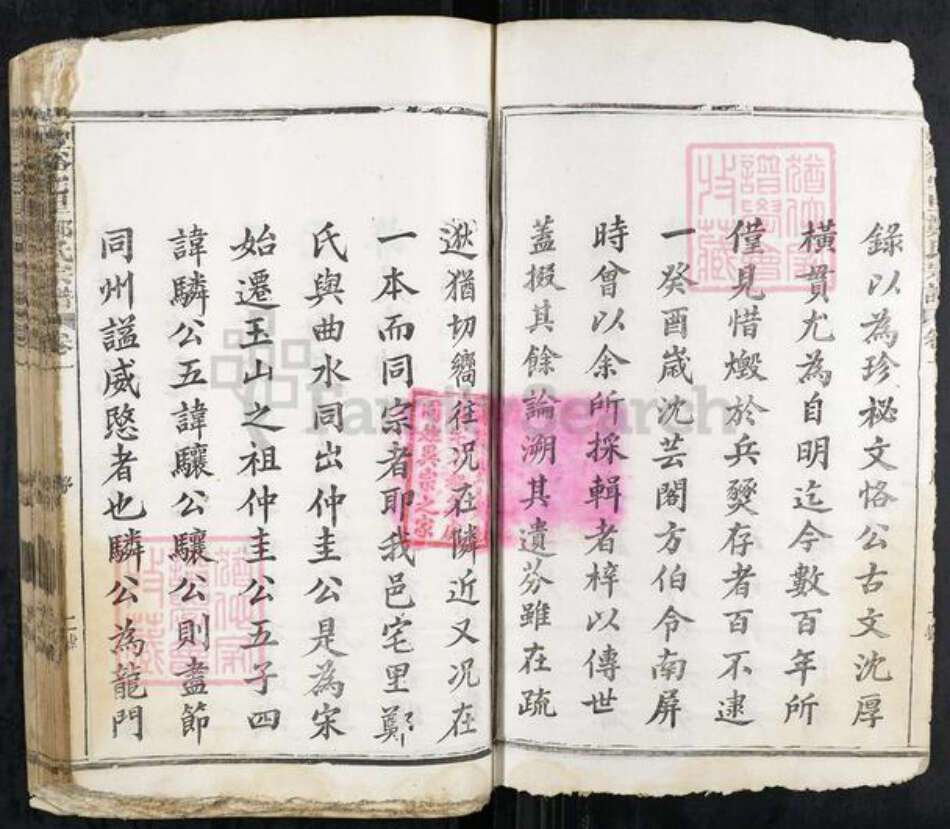 錄以為珍秘文恪公古文沈厚
橫貫尤為自明迄今數百年所
僅見惜燬於兵燹存者百不逮
一癸酉歲沈芸閣方伯令南屏
時曾以余所採輯者梓以傳世
蓋掇其餘論溯其遺芬雖在疏
逖猶切嚮往況在隣近又況在
一本而同宗者耶我邑宅里鄭
氏與曲水同出仲圭公是為宋
始遷玉山之祖仲圭公五子四
諱驎公五諱驤公驤公則盡節
同州謚威愍者也驎公為龍門
FamilySearch